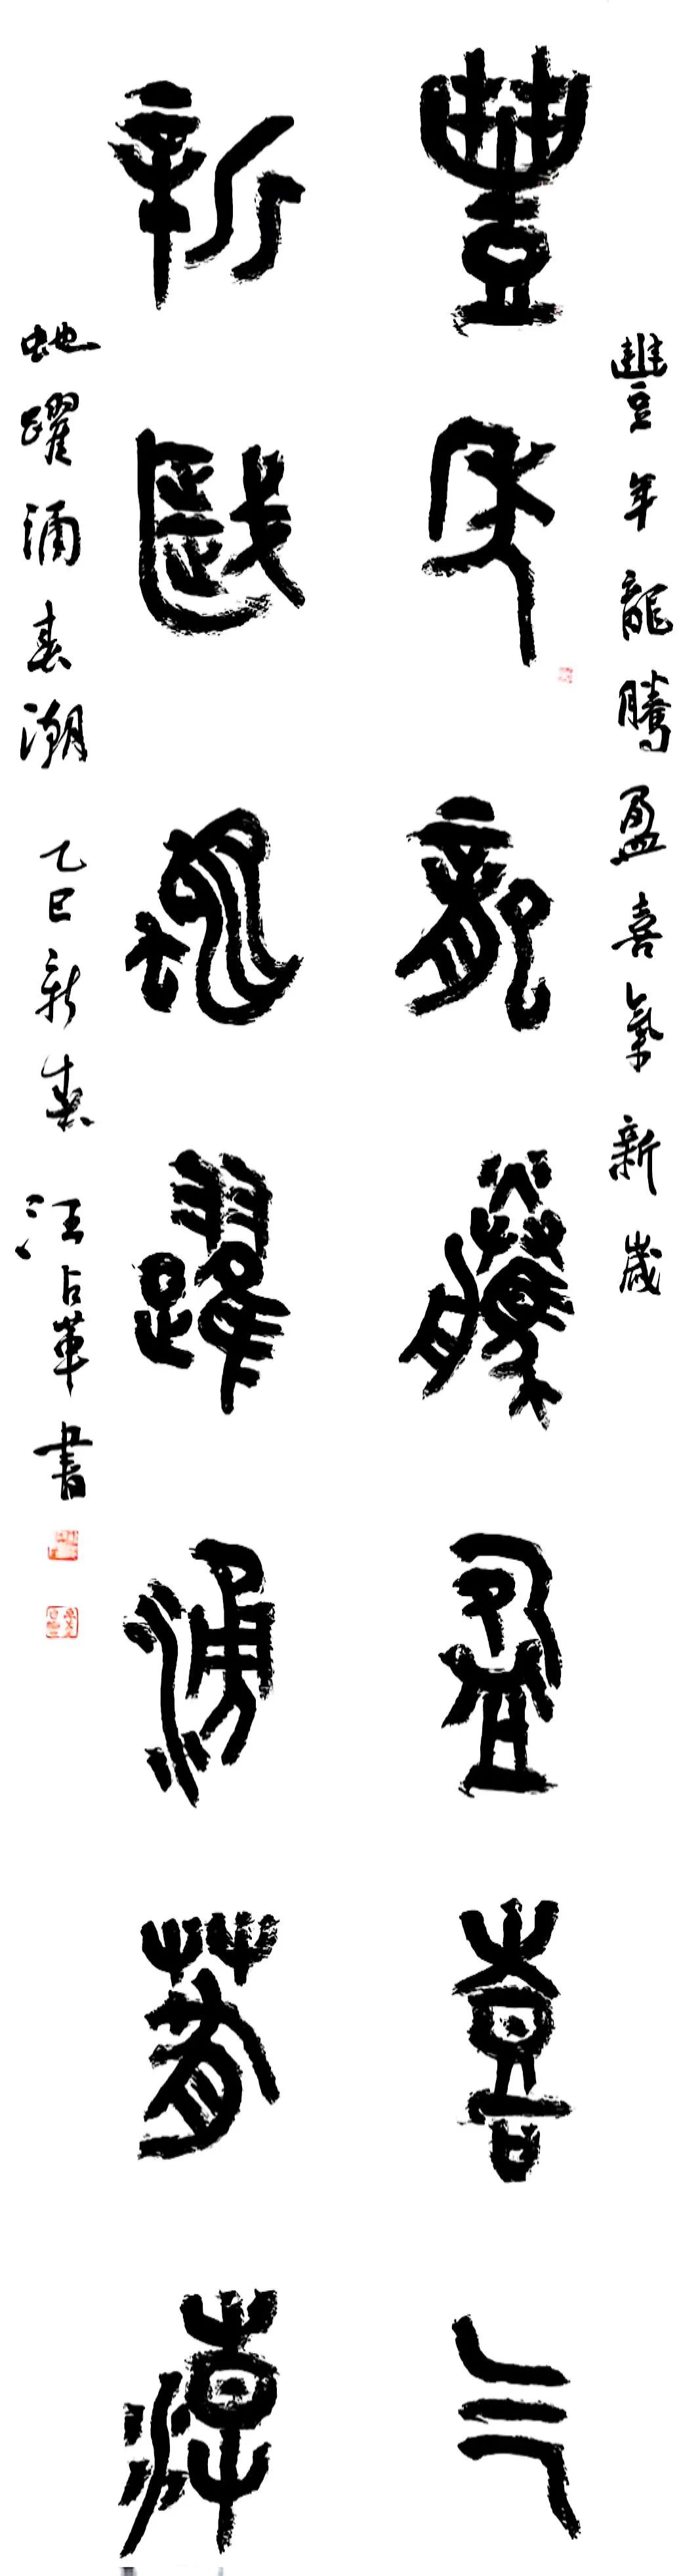 豐年龍騰盈喜氣新歲
豐年龍騰盈喜气
新歲蛇躍涌春潮
蛇躍涌春潮 乙巳新春 汪占革書